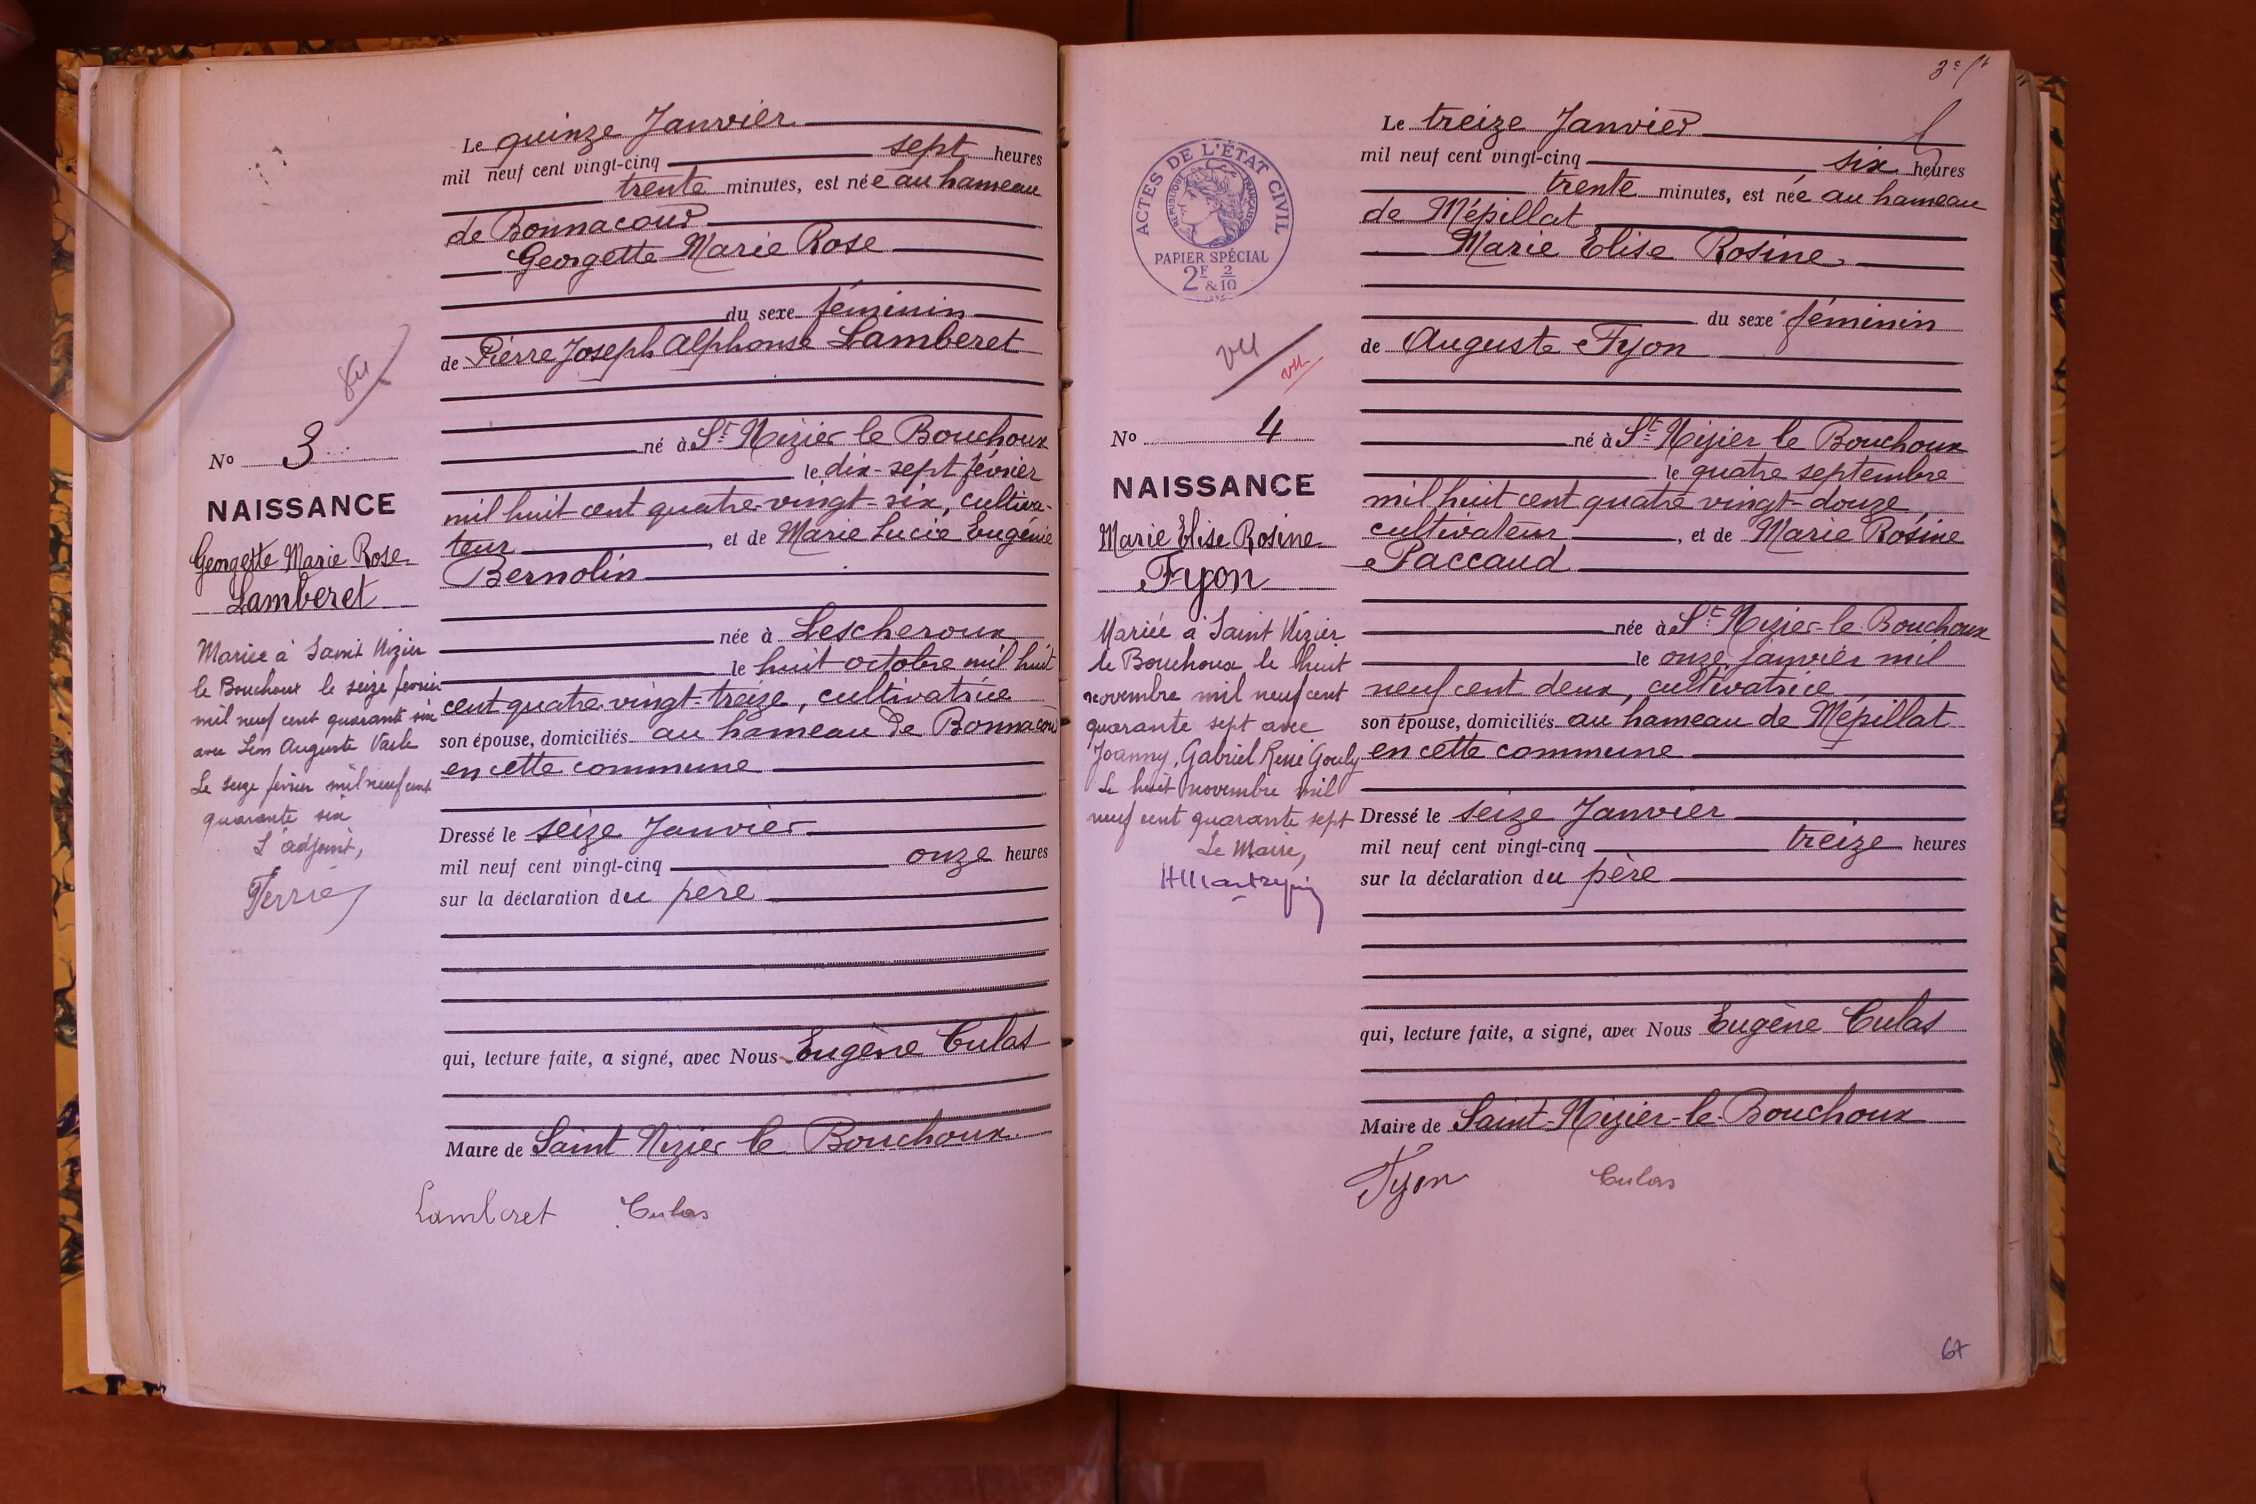 Le quinze Janvier
mil neuf cent vingt-cinq sept heures
trente minutes, est née au hameau
de Bonnacour
Georgette Marie Rose
du sexe féminin
de Pierre Joseph Alphonse Lamberet
né à St Nizier le Bouchoux
le dix-sept février
mil huit cent quatre-vingt-six, cultiva-
teur, et de Marie Lucie Eugénie
Bernolin
née à Lescheroux
le huit octobre mil huit
cent quatre-vingt-treize, cultivatrice
son épouse, domiciliés au hameau de Bonnacour
en cette commune
Dressé le seize Janvier
mil neuf cent vingt-cinq onze heures
sur la déclaration du père
qui, lecture faite, a signé, avec Nous Eugène Culas
Maire de Saint Nizier le Bouchoux
Lamberet Culas
No 3
NAISSANCE
Georgette Marie Rose
Lamberet
Mariée à Saint Nizier
le Bouchoux le seize février
mil neuf cent quarante six
avec Léon Auguste
Le seize février mil neuf cent
quarante six
L'adjoint,
3e
Le treize Janvier
mil neuf cent vingt-cinq six heures
trente minutes, est née au hameau
de Mépillat
Marie Elise Rosine
du sexe féminin
de Auguste Fyon
né à St Nizier le Bouchoux
le quatre septembre
mil huit cent quatre vingt-douze,
cultivateur, et de Marie Rosine
Paccaud
née à St Nizier-le Bouchoux
le onze janvier mil
neuf cent deux, cultivatrice
son épouse, domiciliés au hameau de Mépillat
en cette commune
Dressé le seize Janvier
mil neuf cent vingt-cinq treize heures
sur la déclaration du père
qui, lecture faite, a signé, avec Nous Eugène Culas
Maire de Saint-Nizier-le-Bouchoux
Fyon Culas
ACTES DE L'ÉTAT CIVIL
RÉPUBLIQUE FRANÇAISE
PAPIER SPÉCIAL
2F 2
& 10
vu
vu
No 4
NAISSANCE
Marie Elise Rosine
Fyon
Mariée à Saint Nizier
le Bouchoux le huit
novembre mil neuf cent
quarante sept avec
Joanny, Gabriel René Gouly
Le huit novembre mil
neuf cent quarante sept
Le Maire,
67